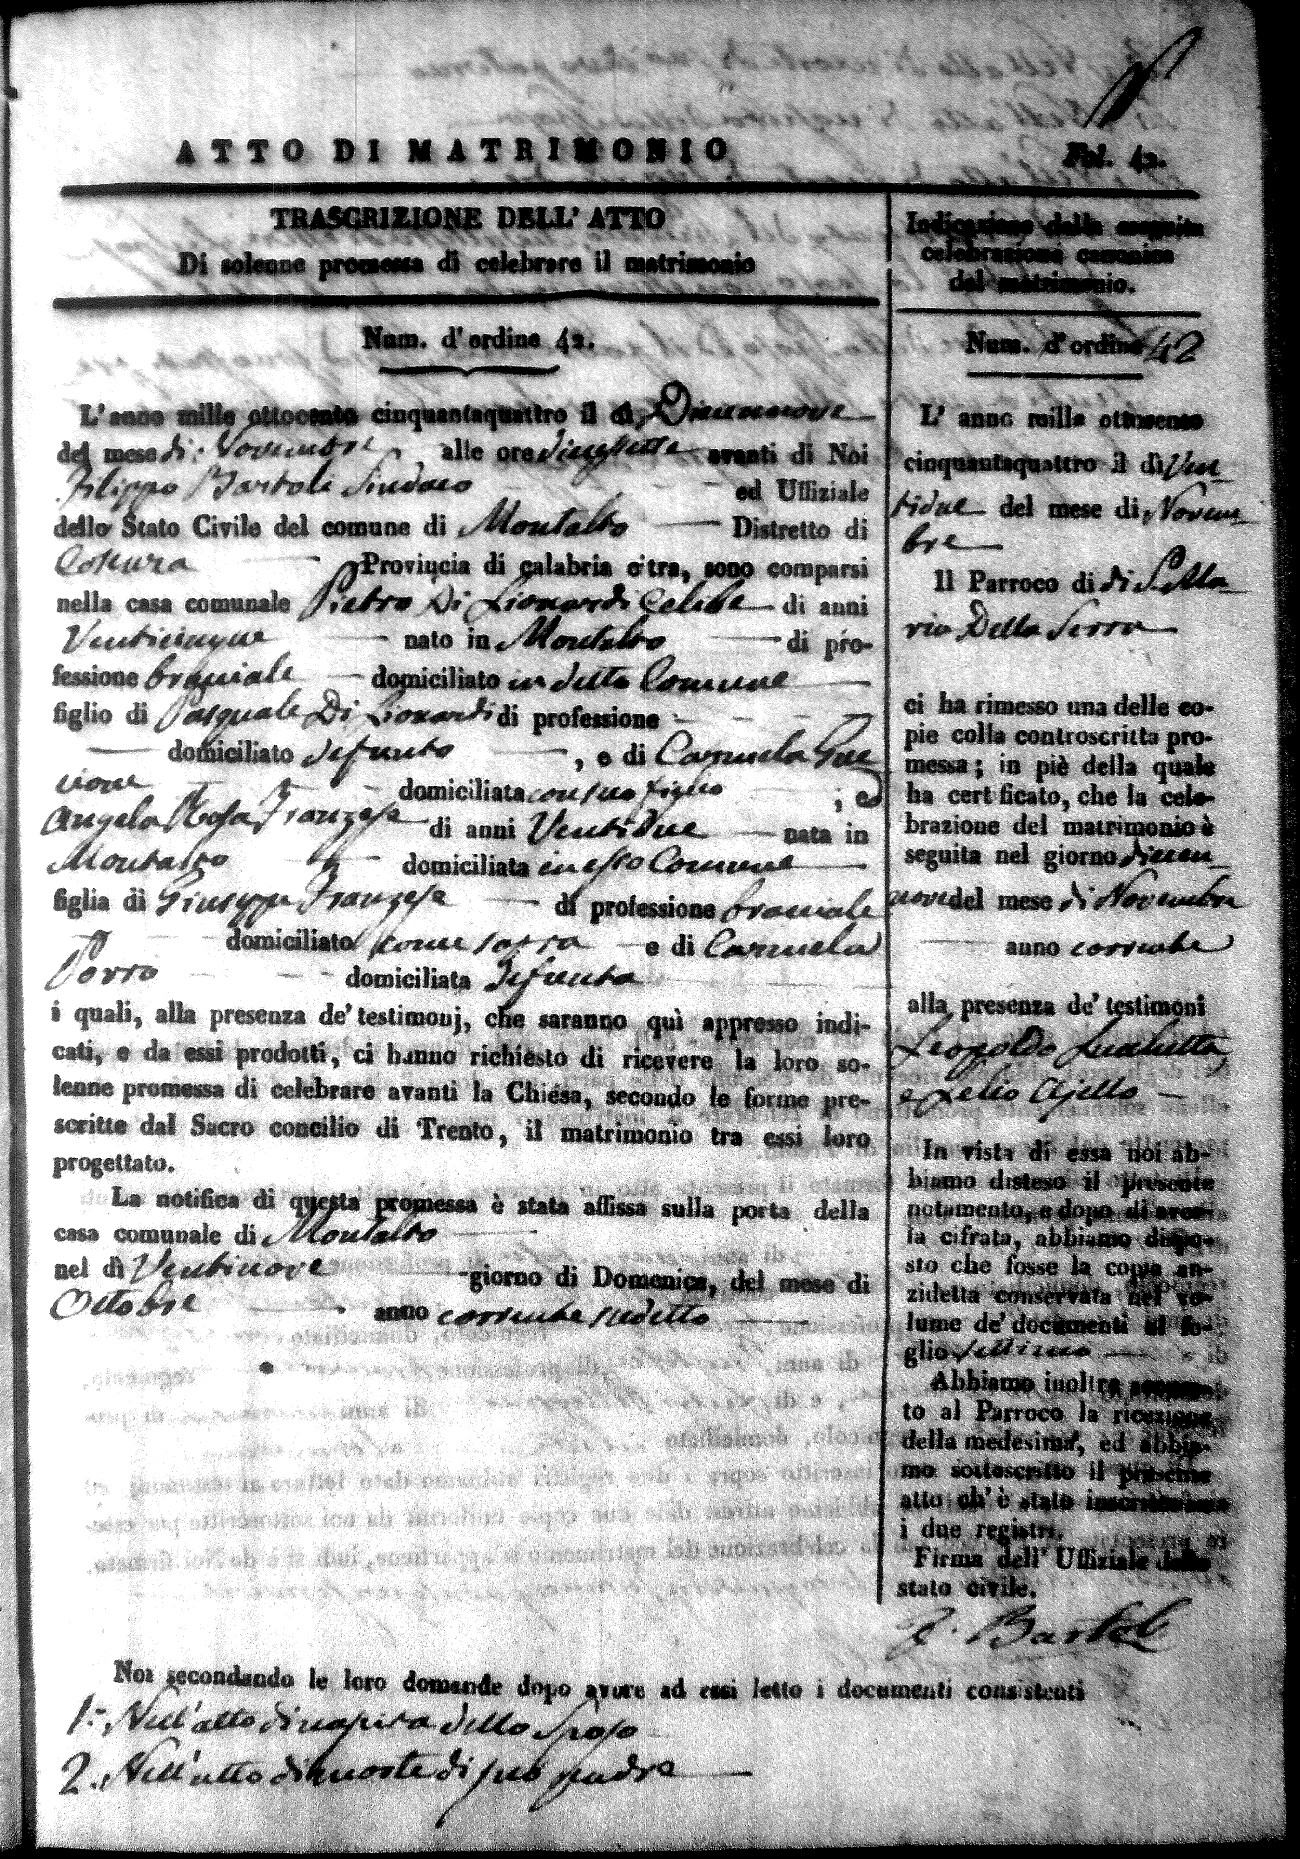 ATTO DI MATRIMONIO
Fol. 42.
TRASCRIZIONE DELL' ATTO
Di solenne promessa di celebrare il matrimonio
Num. d'ordine 42.
L'anno mille ottocento cinquantaquattro il dì Diecennove
del mese di Novembre alle ore avanti di Noi
Filippo Bartoli Sindaco ed Uffiziale
dello Stato Civile del comune di Montalto Distretto di
Cosenza Provincia di calabria citra, sono comparsi
nella casa comunale Pietro Di Lionardi Celibe di anni
Venticinque nato in Montalto di pro-
fessione bracciale domiciliato in detto Comune
figlio di Pasquale Di Lionardi di professione
domiciliato defunto , e di Carmela
domiciliata con suo figlio ; ed
Angela Rosa Franzese di anni Ventidue nata in
Montalto domiciliata in esso Comune
figlia di Giuseppe Franzese di professione bracciale
domiciliato come sopra e di Carmela
Porro domiciliata Defunta
i quali, alla presenza de' testimonj, che saranno quì appresso indi-
cati, e da essi prodotti, ci hanno richiesto di ricevere la loro so-
lenne promessa di celebrare avanti la Chiesa, secondo le forme pre-
scritte dal Sacro concilio di Trento, il matrimonio tra essi loro
progettato.
La notifica di questa promessa è stata affissa sulla porta della
casa comunale di Montalto
nel dì Ventinove giorno di Domenica, del mese di
Ottobre anno corrente sudetto
Indicazione della seguita
celebrazione canonica
del matrimonio.
Num. d'ordine 42
L' anno mille ottocento
cinquantaquattro il dì Ven-
tidue del mese di Novem-
bre
Il Parroco di di S. Ma-
ria Della Serra
ci ha rimesso una delle co-
pie colla controscritta pro-
messa; in piè della quale
ha certificato, che la cele-
brazione del matrimonio è
seguita nel giorno diecen-
nove del mese di Novembre
anno corrente
alla presenza de' testimoni
Leopoldo
e Lelio Ajello
In vista di essa noi ab-
biamo disteso il presente
notamento, e dopo di aver-
la cifrata, abbiamo dispo-
sto che fosse la copia an-
zidetta conservata nel vo-
lume de' documenti al fo-
glio settimo
Abbiamo inoltre accusa-
to al Parroco la ricezione
della medesima, ed abbia-
mo sottoscritto il presente
atto ch' è stato inscritto sopra
i due registri.
Firma dell' Uffiziale dello
stato civile.
F. Bartoli
Noi secondando le loro domande dopo avere ad essi letto i documenti consistenti
1: Nell'atto di nascita dello Sposo
2. Nell'atto di morte di suo padre